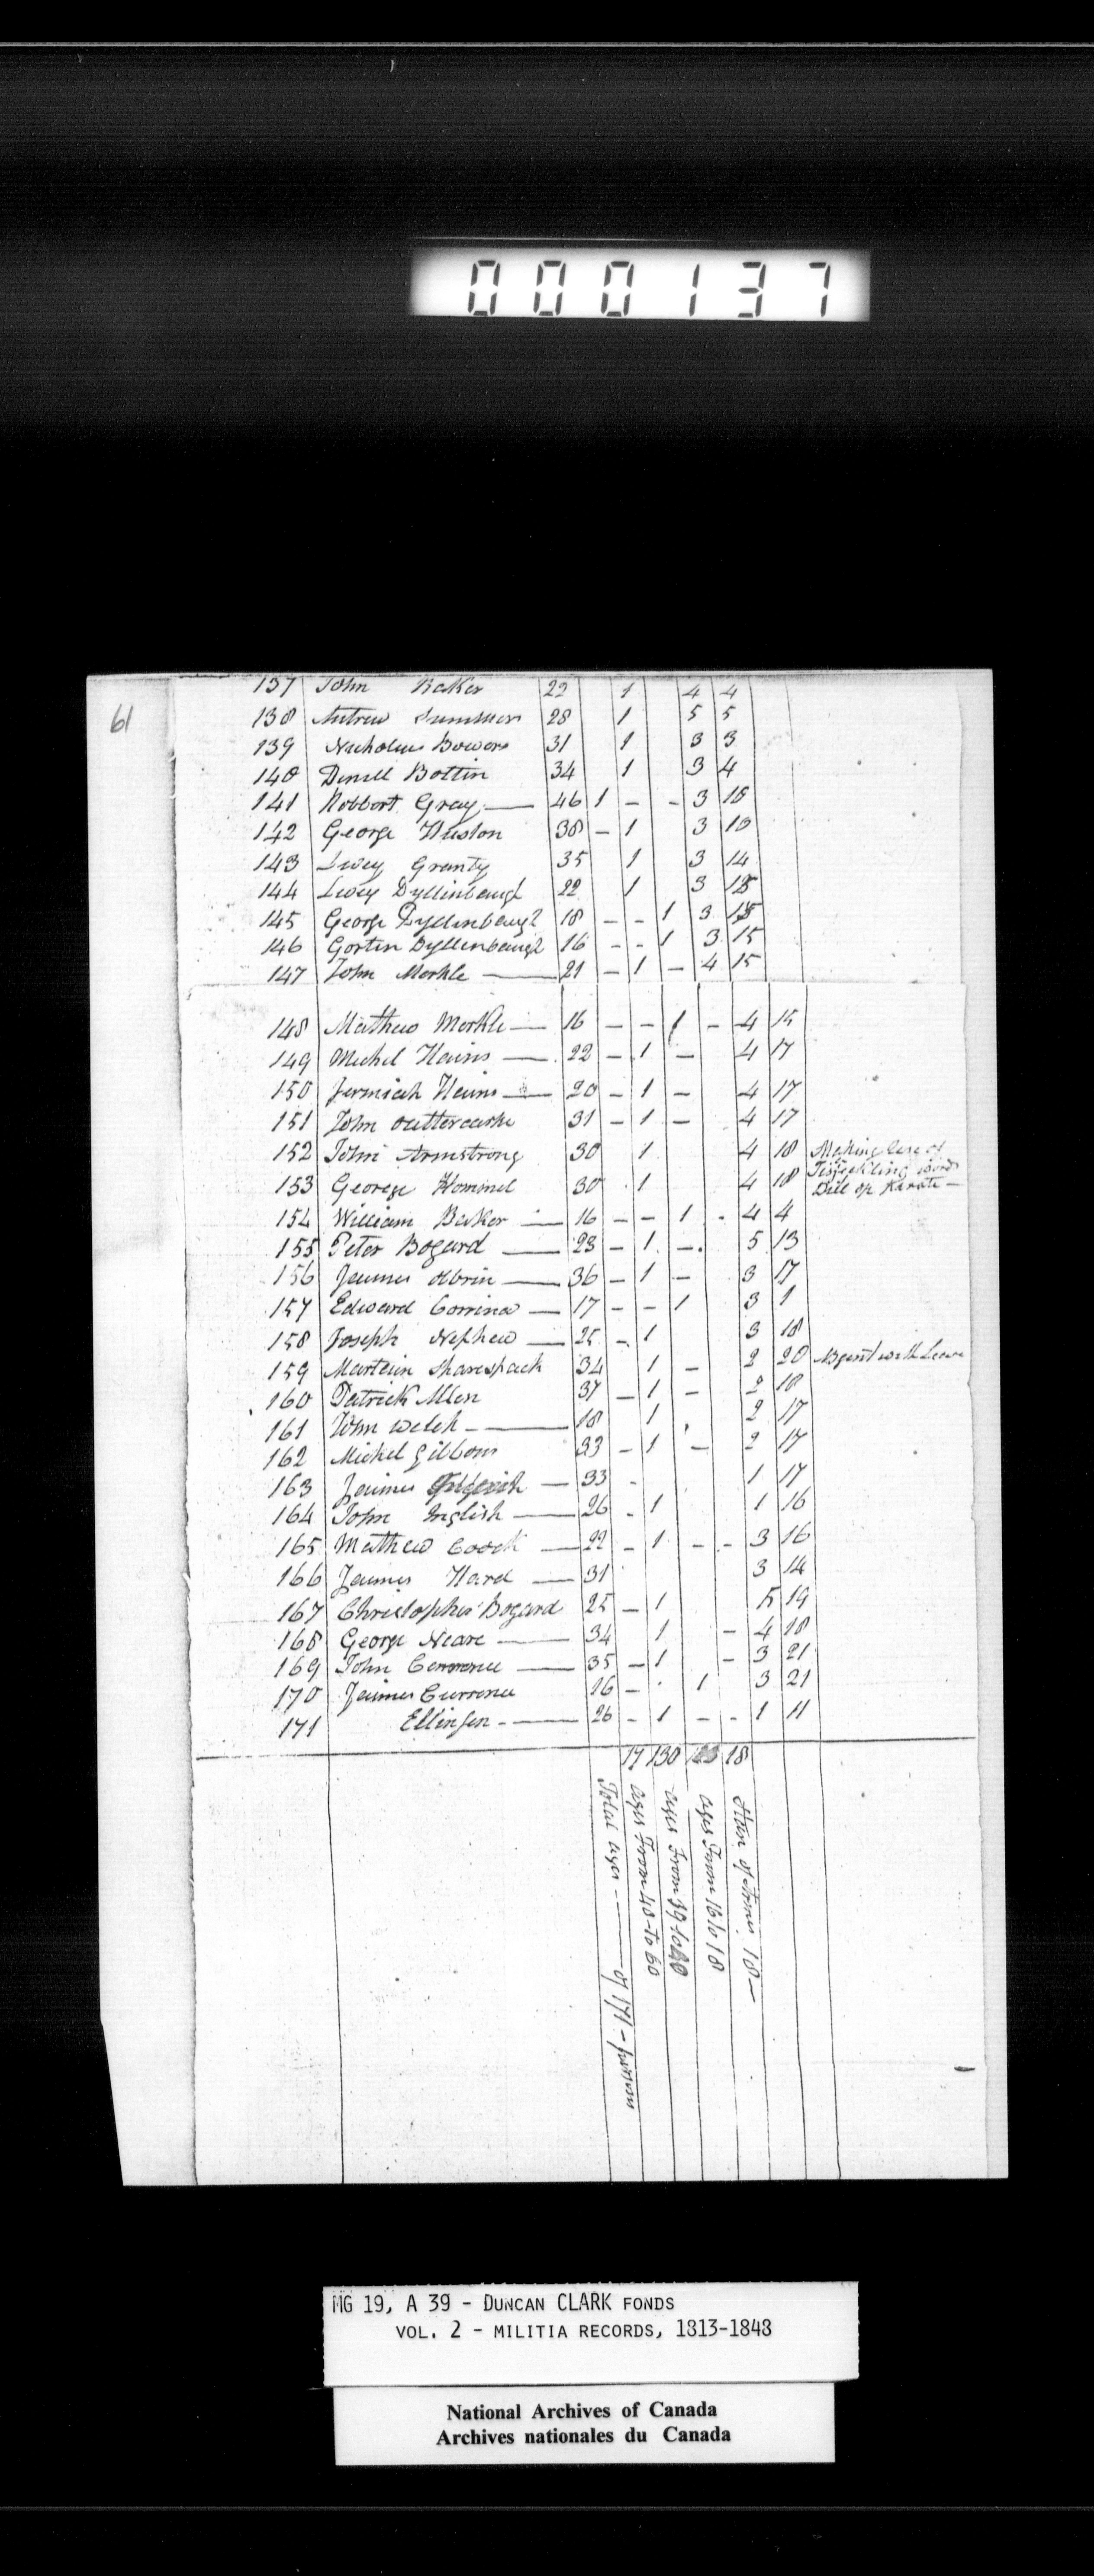 000137
61
137 John Baker 22 1 4 4
138 Andrew Summers 28 1 5 5
139 Nicholus Bowers 31 1 3 3
140 Bottin 34 1 3 4
141 Robbort Gray — 46 1 – – 3 18
142 George Huston 38 – 1 3 18
143 Lwey Granty 35 1 3 14
144 Lwey Dyllinbaugh 22 1 3 15
145 George Dyllenbaugh 18 – – 1 3 15
146 Gortin Dyllenbaugh 16 – – 1 3 15
147 John Merkle — 21 – 1 – 4 15
148 Mathew Merkle — 16 – – 1 – 4 15
149 Michel Hains — 22 – 1 – 4 17
150 Jermiah Hains — 20 – 1 – 4 17
151 John 31 – 1 – 4 17
152 John Armstrong 30 1 4 18 Making
153 George Hommel 30 1 4 18
154 William Baker — 16 – – 1 – 4 4
155 Peter Bogard — 23 – 1 – 5 13
156 Jaumes Obrin — 36 – 1 – 3 17
157 Edward Corrina — 17 – – 1 3 1
158 Joseph Nephew — 25 – 1 3 18
159 Martein Sharespack 34 1 – 2 20 Absent with Leave
160 Patrick Allen 37 – 1 – 2 18
161 John Welch — 18 1 2 17
162 Michel Gibbons 33 – 1 – 2 17
163 Jaumes — 33 – 1 17
164 John English — 26 – 1 1 16
165 Mathew Coock — 22 – 1 – – 3 16
166 Jaumes Hard — 31 3 14
167 Christopher Bogard 25 – 1 5 19
168 George Neare — 34 1 – 4 18
169 John — 35 – 1 – 3 21
170 Jaumes Currence 16 – 1 3 21
171 Ellinsen — 26 – 1 – – 1 11
17 130 23 18
Total ages — of 171 –
ages From 40 to 60
ages From 19 to 40
ages From 16 to 18
Stan of Arms 18 —
MG 19, A 39 - DUNCAN CLARK FONDS
VOL. 2 - MILITIA RECORDS, 1813-1848
National Archives of Canada
Archives nationales du Canada